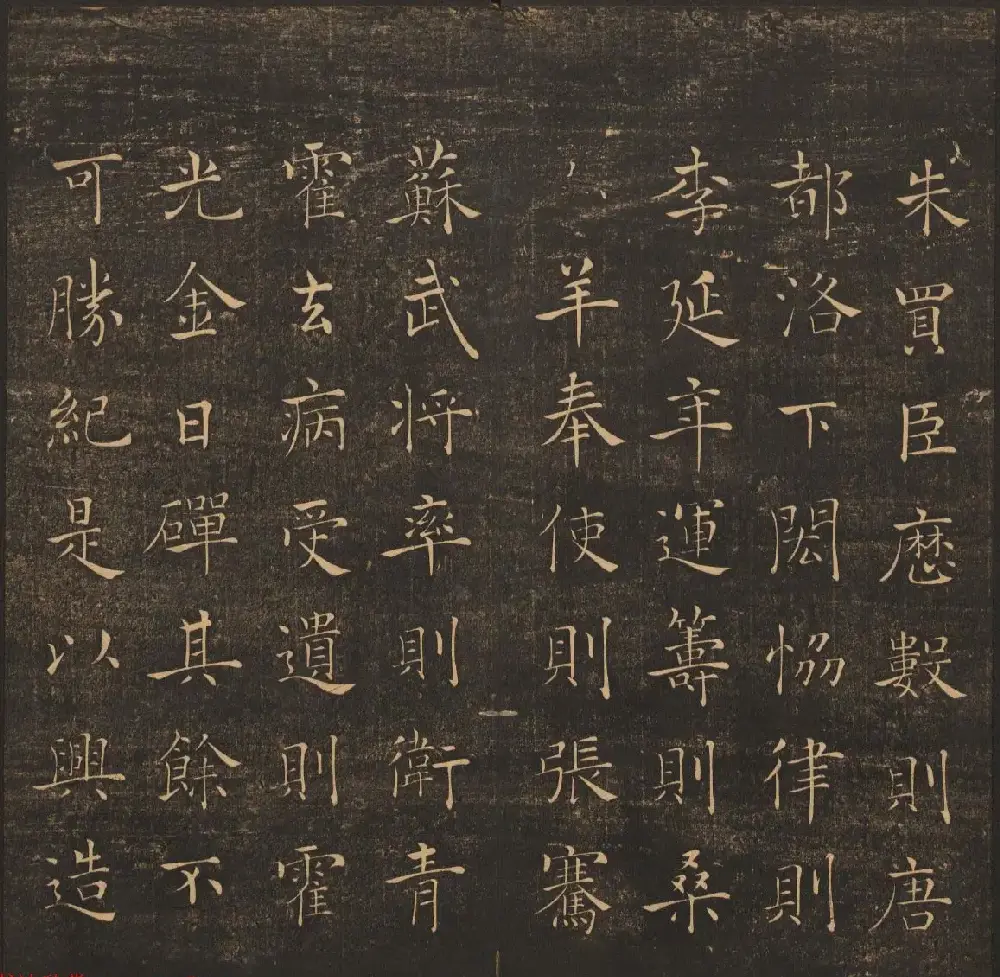 朱買臣歷數則唐
都洛下閎恊律則
李延年運籌則桑
羊奉使則張騫
蘇武将率則衛青
霍去病受遺則霍
光金日磾其餘不
可勝紀是以興造